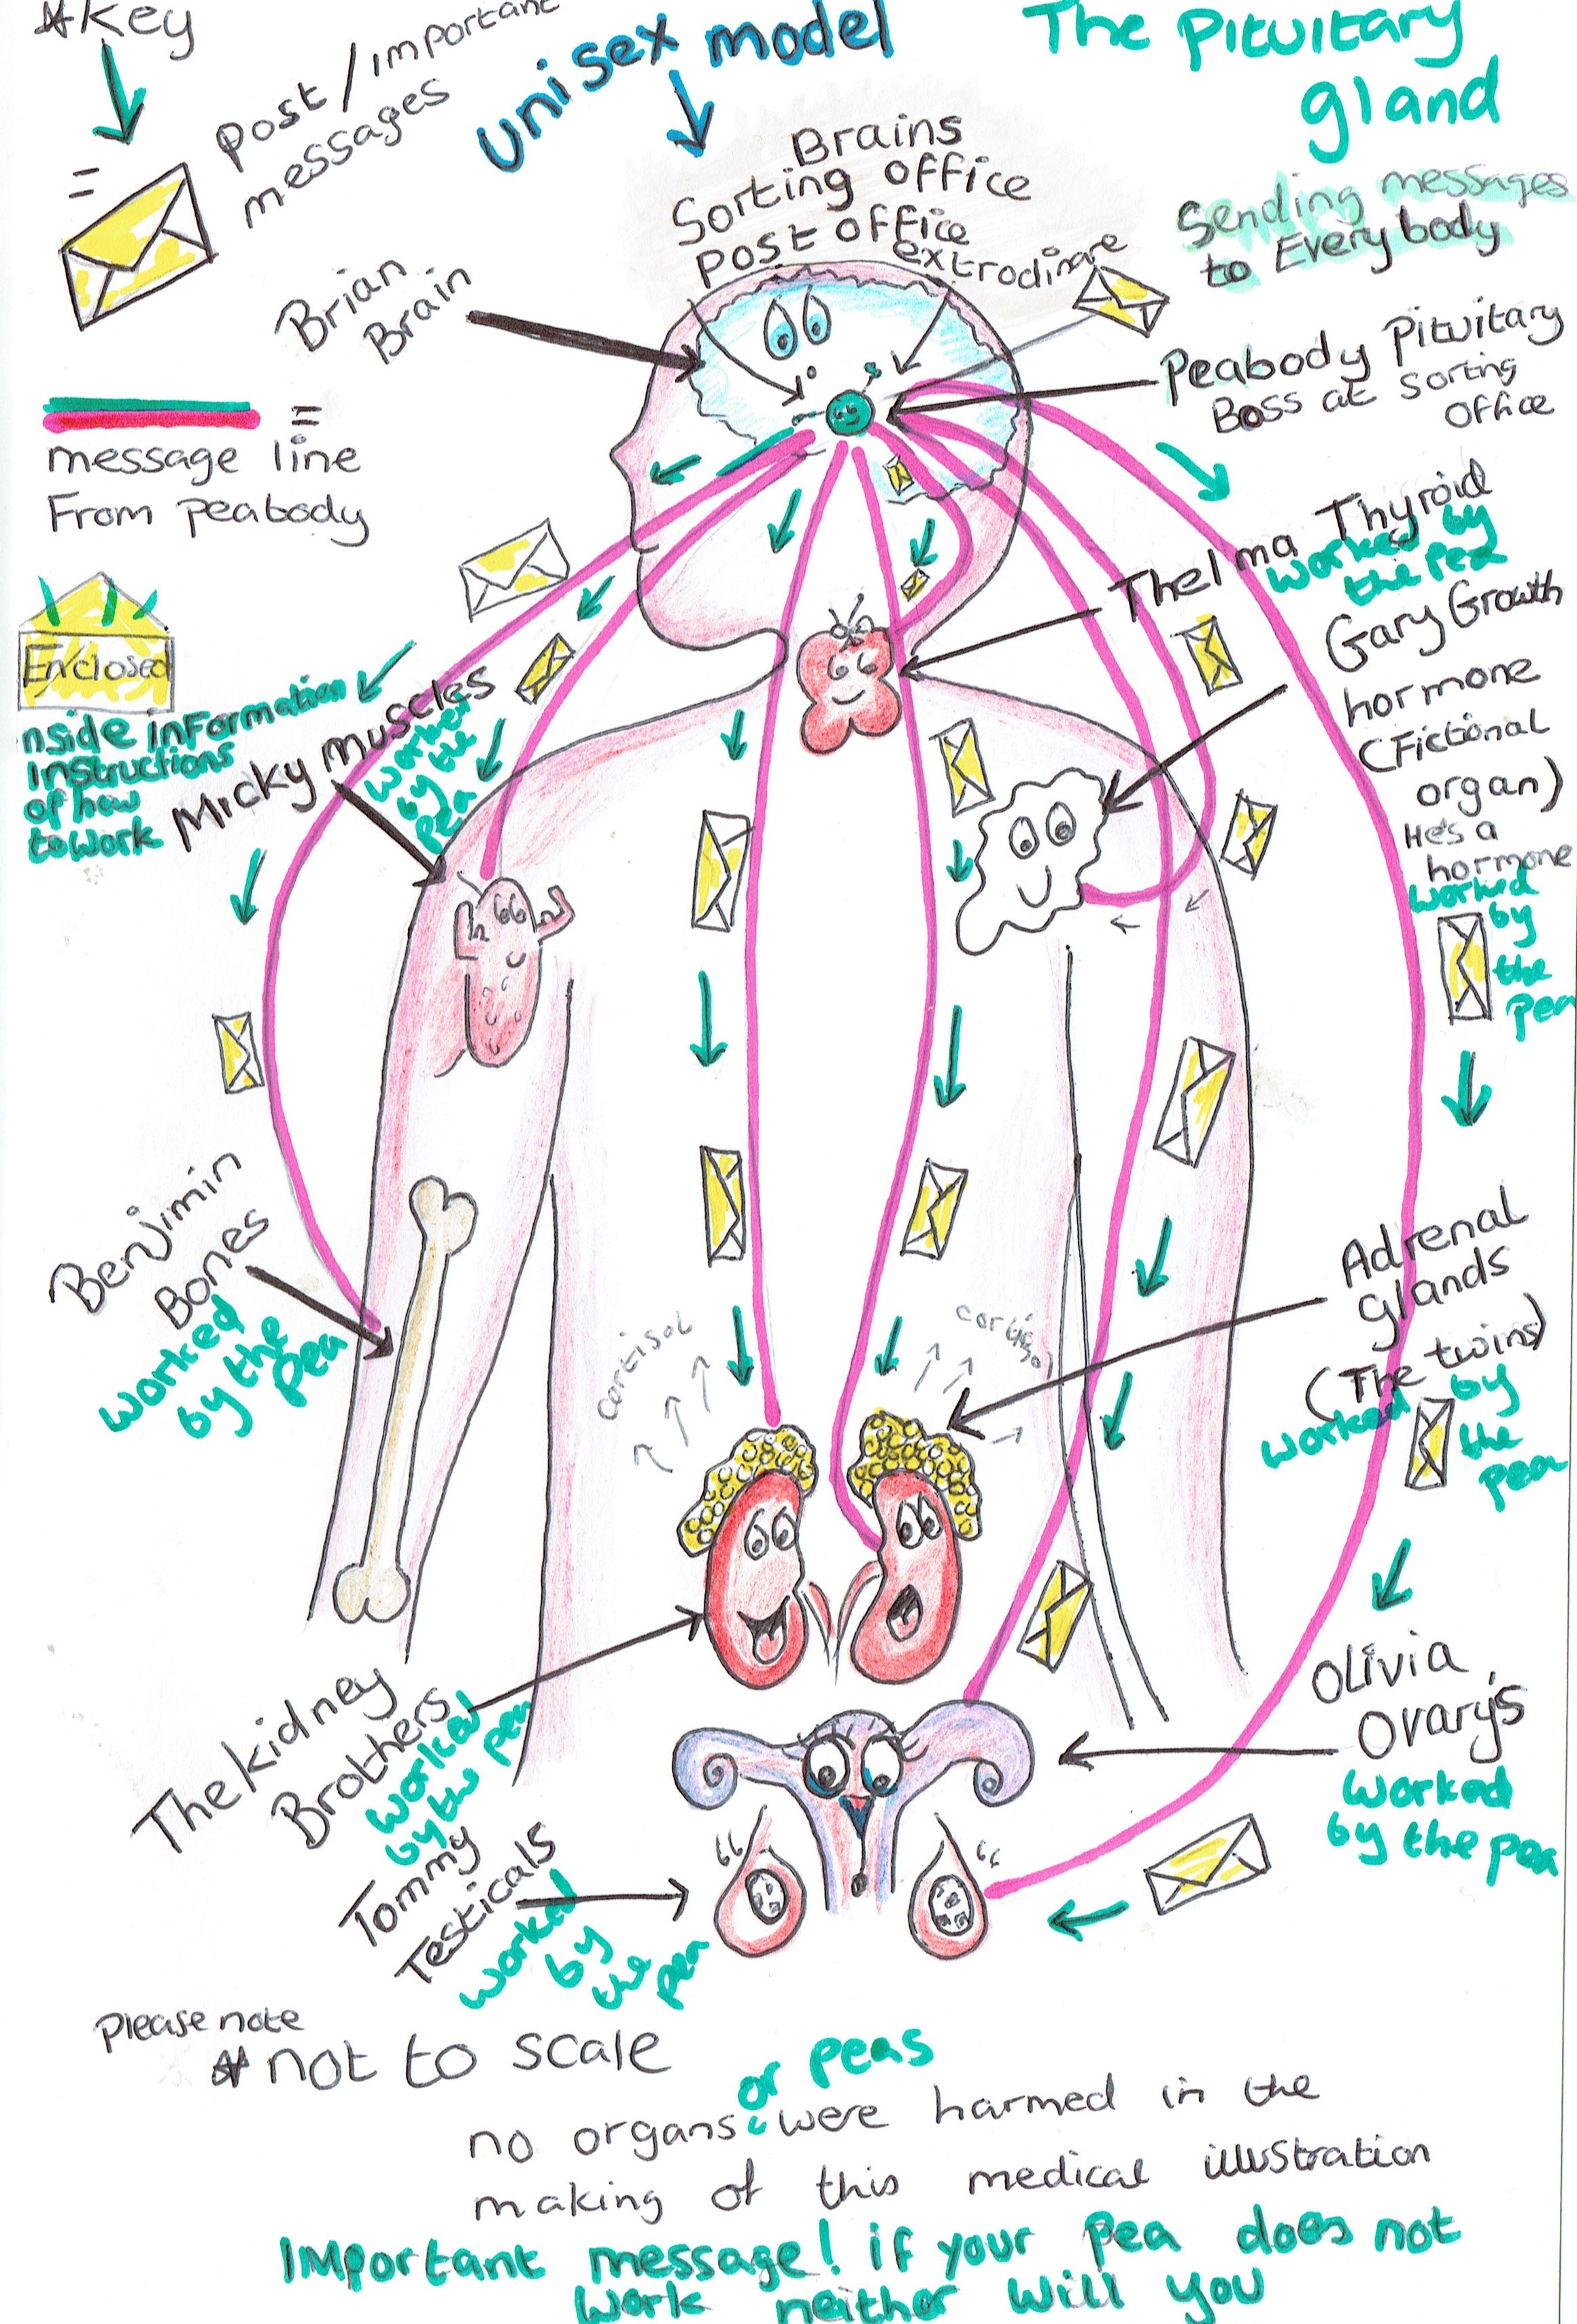 *Key
Post / important
messages
=
unisex model
The Pituitary
gland
Sending messages
to Everybody
Brains
Sorting office
Post office
extrodinare
Brian
Brain
Peabody Pituitary
Boss at Sorting
office
=
message line
From peabody
Enclosed
nside information
instructions
of how
to work
Micky Muscles
worked
by the
Pea
Thelma Thyroid
worked by
the Pea
Gary Growth
hormone
(Fictional
organ)
He's a
hormone
worked
by
the
Pea
Benjimin
Bones
worked
by the
Pea
cortisol
cortisol
Adrenal
glands
(The twins)
worked by
the
pea
The kidney
Brothers
worked
by the pea
Olivia
Ovary's
worked
by the pea
Tommy
Testicals
worked
by
the pea
Please note
* not to scale
or peas
no organs were harmed in the
making of this medical illustration
Important message! if your pea does not
work neither will you